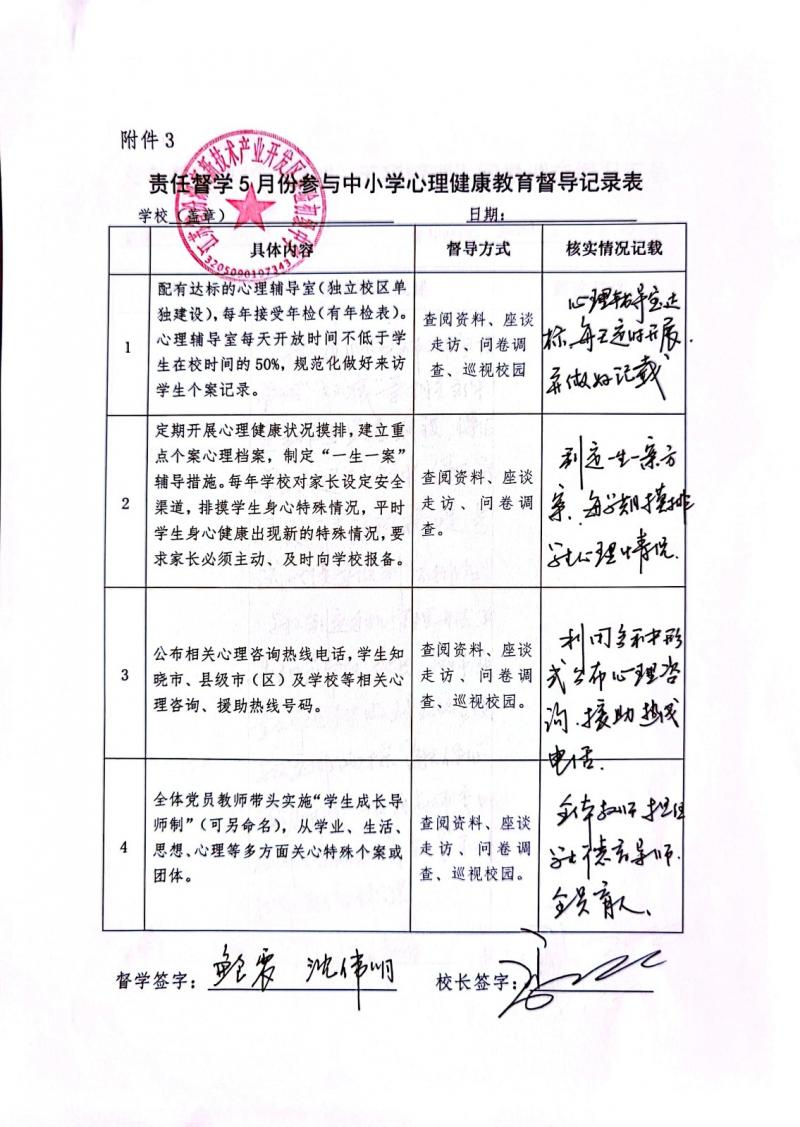 附件3
责任督学5月份参与中小学心理健康教育督导记录表
学校（盖章）
日期：
3205090197343
具体内容
督导方式
核实情况记载
1
配有达标的心理辅导室（独立校区单
独建设），每年接受年检（有年检表）。
心理辅导室每天开放时间不低于学
生在校时间的50%，规范化做好来访
学生个案记录。
查阅资料、座谈
走访、问卷调
查、巡视校园
心理辅导室达
标，每天定时开展
并做好记载
2
定期开展心理健康状况摸排，建立重
点个案心理档案，制定“一生一案”
辅导措施。每年学校对家长设定安全
渠道，排摸学生身心特殊情况，平时
学生身心健康出现新的特殊情况，要
求家长必须主动、及时向学校报备。
查阅资料、座谈
走访、问卷调
查。
制定一生一案方
案，每学期摸排
学生心理情况.
3
公布相关心理咨询热线电话，学生知
晓市、县级市（区）及学校等相关心
理咨询、援助热线号码。
查阅资料、座谈
走访、问卷调
查、巡视校园。
利用多种形
式公布心理咨
询、援助热线
电话.
4
全体党员教师带头实施“学生成长导
师制”（可另命名），从学业、生活、
思想、心理等多方面关心特殊个案或
团体。
查阅资料、座谈
走访、问卷调
查、巡视校园。
全体教师担任
学生德育导师.
全员育人、
督学签字：鲍震 沈伟明
校长签字：